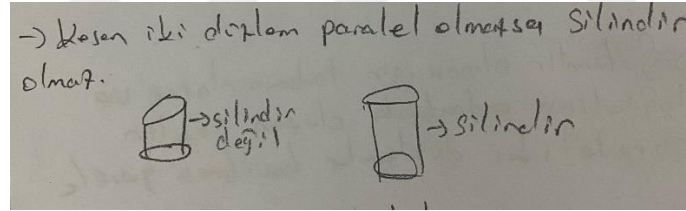 → Kesen iki düzlem paralel olmazsa silindir
olmaz.
→ silindir
değil
→ silindir